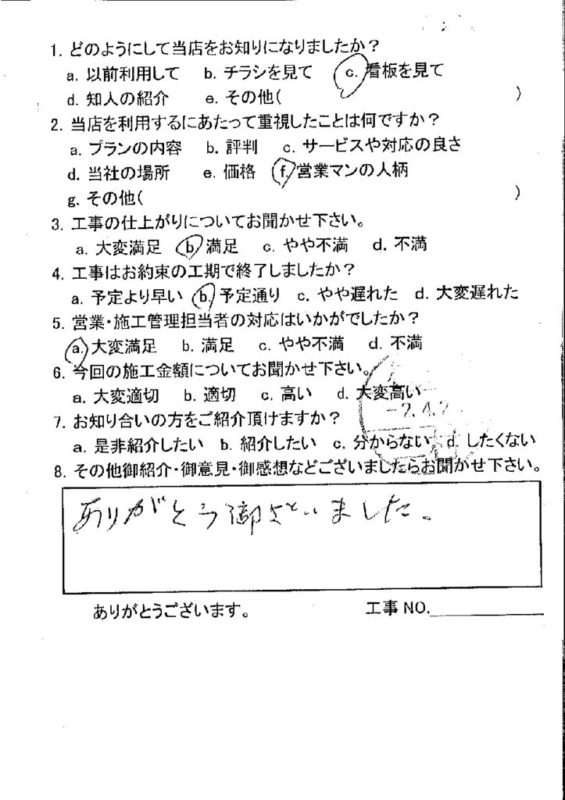 1. どのようにして当店をお知りになりましたか？
a. 以前利用して b. チラシを見て c. 看板を見て
d. 知人の紹介 e. その他( )
2. 当店を利用するにあたって重視したことは何ですか？
a. プランの内容 b. 評判 c. サービスや対応の良さ
d. 当社の場所 e. 価格 f. 営業マンの人柄
g. その他( )
3. 工事の仕上がりについてお聞かせ下さい。
a. 大変満足 b. 満足 c. やや不満 d. 不満
4. 工事はお約束の工期で終了しましたか？
a. 予定より早い b. 予定通り c. やや遅れた d. 大変遅れた
5. 営業・施工管理担当者の対応はいかがでしたか？
a. 大変満足 b. 満足 c. やや不満 d. 不満
6. 今回の施工金額についてお聞かせ下さい。
a. 大変適切 b. 適切 c. 高い d. 大変高い
7. お知り合いの方をご紹介頂けますか？
a. 是非紹介したい b. 紹介したい c. 分からない d. したくない
8. その他御紹介・御意見・御感想などございましたらお聞かせ下さい。
ありがとう御ざいました。
ありがとうございます。 工事 NO.